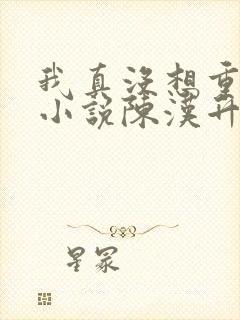 我真没想重
小说陈汉升
星冢